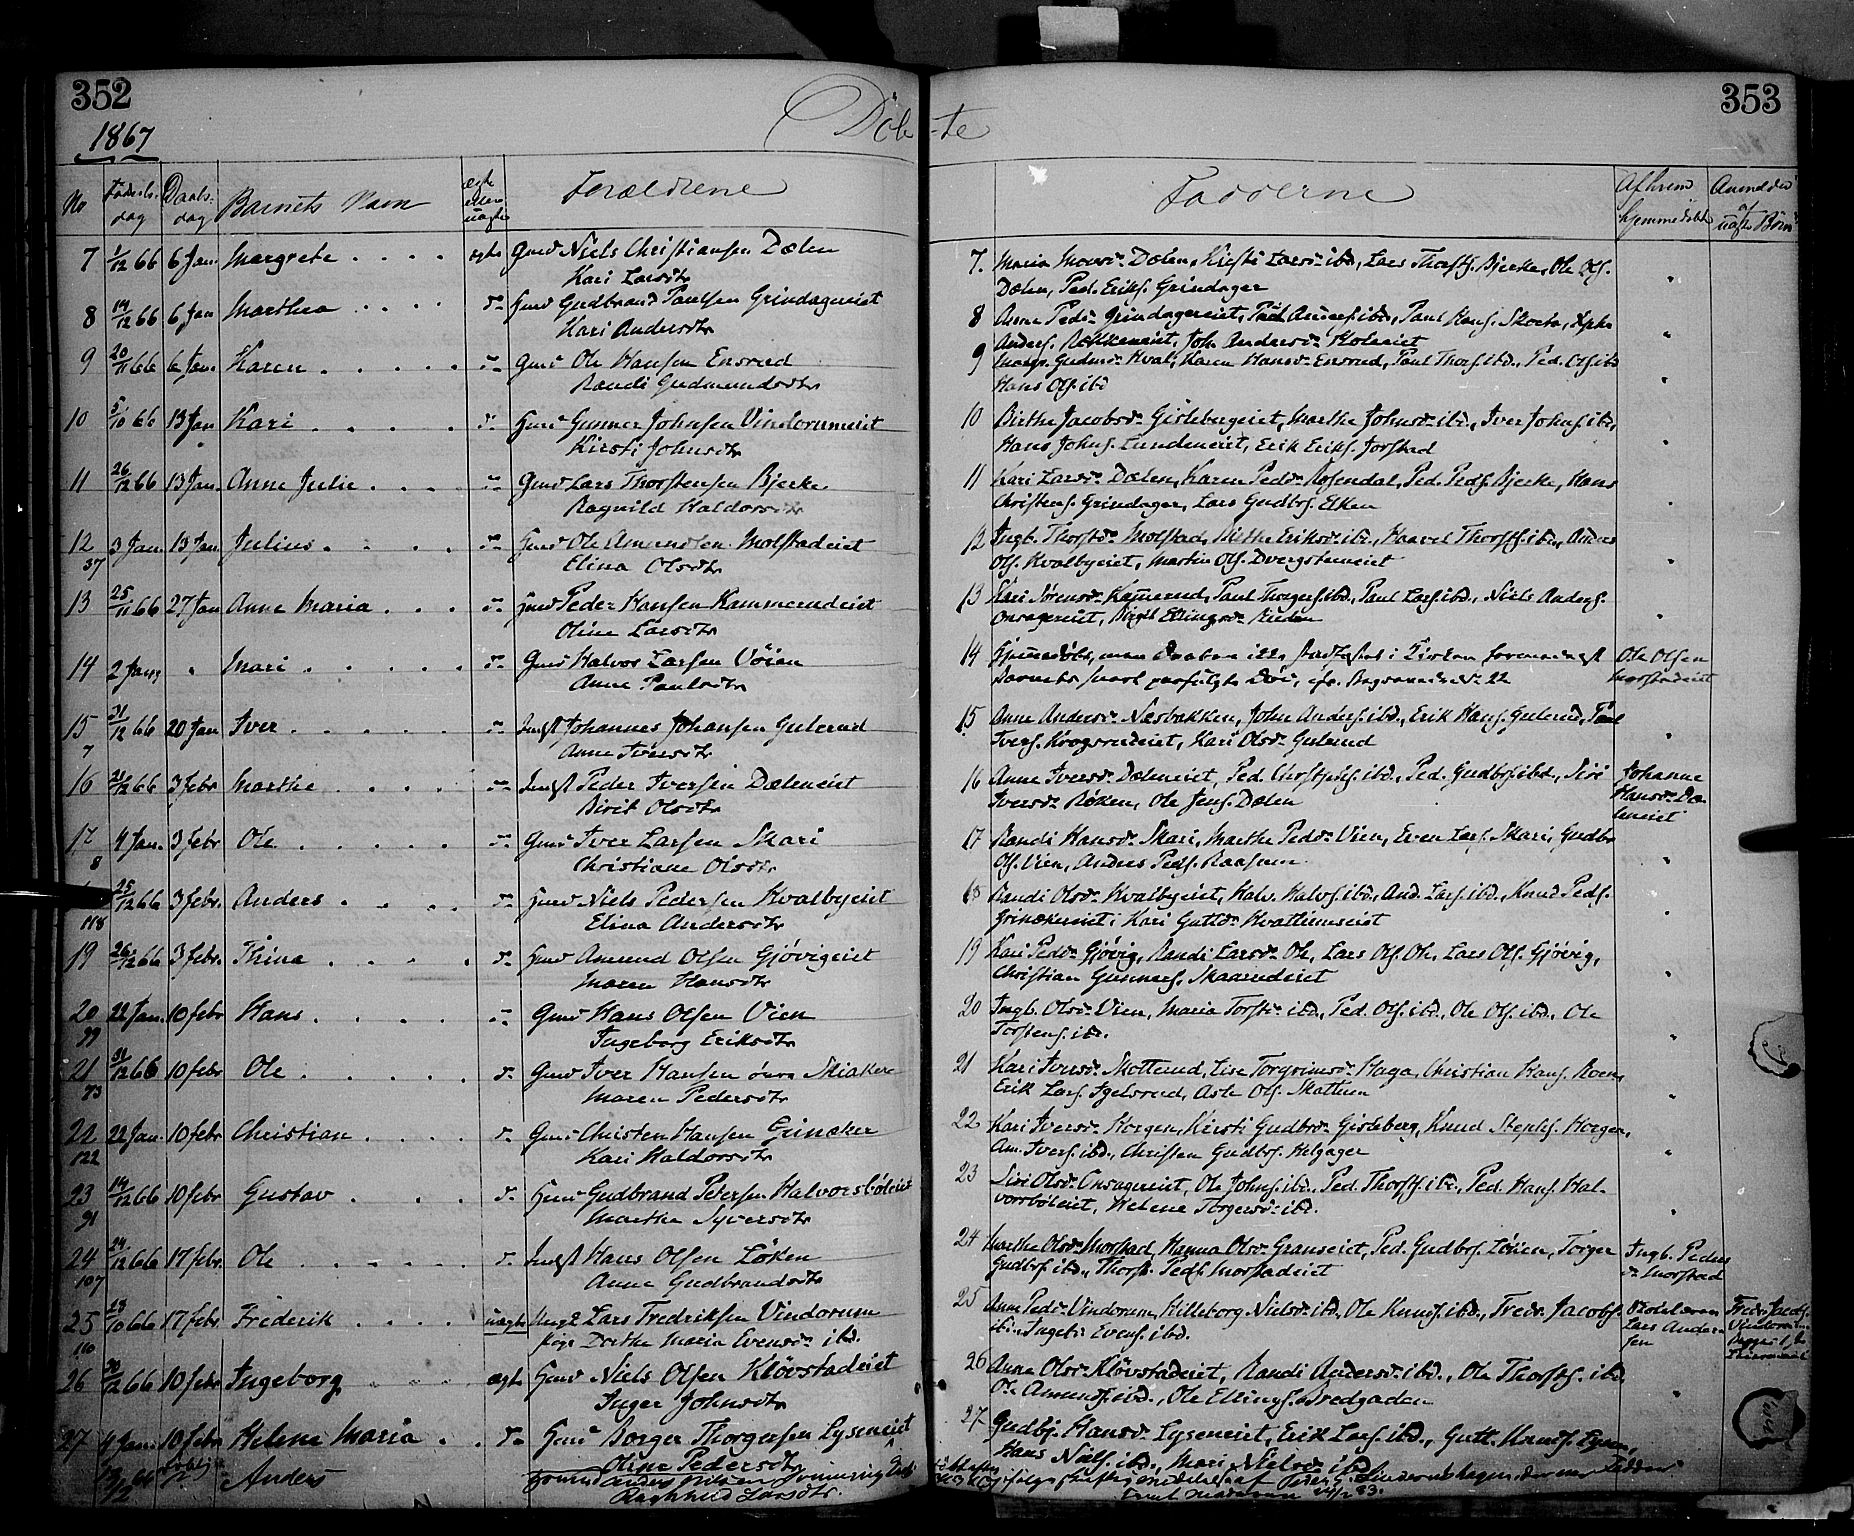 352
1867
Döb
No Födsels- dag Daabs- dag Barnets Navn ægte eller uægte Forældrene
7 1/12 66 6 Jan. Margrete ægte Gmd Niels Christiansen Dælen
Kari Larsdtr
8 14/12 66 6 Jan Marthea Hmd Gudbrand Paulsen Grindagereiet
Kari Andersdtr
9 20/11 66 6 Jan. Karen Gmd Ole Hansen Ensrud
Randi Gudmundsdtr
10 5/10 66 13 Jan Kari Hmd Gunner Johnsen Vindorumeiet
Kirsti Johnsdtr
11 26/12 66 13 Jan. Anne Julie Gmd Lars Thorstensen Bjerke
Ragnild Haldorsdtr
12 3 Jan. 13 Jan. Julius Hmd Ole Amundsen Molstadeiet
37 Elina Olsdtr
13 25/11 66 27 Jan Anne Maria Hmd Peder Hansen Kammerudeiet
Oline Larsdtr
14 2 Jan. " Mari Gmd Halvor Larsen Vöien
Anne Paulsdtr
15 31/12 66 20 Jan Iver Indst Johannes Johansen Gulerud
7 Anne Iversdtr
16 21/12 66 3 febr Marthe Indst Peder Iversen Dæleneiet
Birit Olsdtr
17 4 Jan. 3 febr Ole Gmd Iver Larsen Skari
8 Christiane Olsdtr
25/12 66 3 febr. Anders Hmd Niels Pedersen Hvalbyeiet
118 Elina Andersdtr
19 26/12 66 3 febr. Thina Hmd Amund Olsen Gjövigeiet
Maren Hansdtr
20 22 Jan. 10 febr Hans Gmd Hans Olsen Vien
99 Ingeborg Eriksdtr
21 31/12 66 10 febr Ole Gmd Iver Hansen övre Skiaker
73 Maren Pedersdtr
22 22 Jan. 10 febr Christian Gmd Christen Hansen Grinaker
122 Kari Haldorsdtr
23 14/12 66 10 febr Gustav Hmd Gudbrand Petersen Halvorsböleiet
91 Marthe Syversdtr
24 24/12 66 17 febr Ole Indst Hans Olsen Löken
107 Anne Gudbrandsdtr
25 13/10 66 17 febr Frederik uægte Ungk Lars Fredriksen Vindorum
110 Pige Dorthe Maria Evensdr ibd.
26 30/12 66 10 febr Ingeborg ægte Hmd Niels Olsen Klövstadeiet
Inger Johnsdtr
27 4 Jan. 10 febr Helene Maria Hmd Borger Thorgersen Lyseneiet
Oline Pedersdtr
Anders
Ragnhild Larsdtr.
353
-te
Fadderne Af hvem hjemmedöbt Anmeldes af uægte Börn
7. Maria Monsdr Dælen, Kirsti Larsdr ibd, Lars Thorsts. Bjerke, Ole Ols.
Dælen, Ped. Eriks. Grindager
8 Anne Pedsdr Grindagereiet, Paul Anders. ibd., Paul Hans. Skoeta,
Anders. Rökkeneiet, Joh. Andersdr
9 Marg. Gudmdr Hval, Karen Hansdr Ensrud, Paul Thors. ibd., Ped. Ols. ibd
Hans Ols. ibd
10 Birthe Jacobsdr Gislebergeiet, Marthe Johnsdr ibd., Iver Johns. ibd,
Hans Johns. Lundeneiet, Erik Eriks. Jorstad
11 Kari Larsdr Dælen, Karen Pedsdr Rosendal, Ped. Peds. Bjerke, Hans
Christens. Grindager, Lars Gudbrs. Elken
12 Ingb. Thorstsdr Molstad, Mithe Eriksdr ibd., Haavel Thorsts. ibd., Anders
Ols. Kvalbyeiet, Martin Ols. Dvergsteneiet
13 Kari Sörensdr Kamerud, Paul Thorgers. ibd., Paul Lars. ibd., Niels Anders.
Onsagereiet, Birgit Ellingsdr
14 Hjemmedöbt, men Daaben ikke stadfæstet i Kirken formedelst Ole Olsen
Barnets snart paafulgte Död, Morstadeiet
15 Anne Andersdr Næsbakken, John Anders. ibd., Erik Hans. Gulerud, Paul
Ivers. Krogsrudeiet, Kari Olsdr Gulerud
16 Anne Iversdr Dæleneiet, Ped. ibd., Ped. Gudbrs. ibd., Siri Johanne
Iversdr Röken, Ole Jens. Dælen Hansdr Dæ-
leneiet
17 Randi Hansdr Skari, Marthe Pedsdr Vien, Even Lars. Skari, Gudbr
Ols. Vien, Anders Peds. Raasum
18 Randi Olsdr Hvalbyeiet, Halv. Halvs. ibd., And. Lars. ibd., Knud Peds.
Grinakereiet, Kari Guttdr Kvatlumseiet
19 Kari Pedsdr Gjövig, Randi Larsdr Oh, Lars Ols. Oh, Lars Ols. Gjövig,
Christian Gunners. Skaarudeiet
20 Ingb. Olsdr Vien, Maria Torstsdr ibd., Ped. Ols. ibd., Ole Ols. ibd., Ole
Torstens. ibd.
21 Kari Iversdr Skotterud, Lise Torgrimsdr Haga, Christian Hans. Roen,
Erik Lars. Igelsrud, Asle Ols. Skattum
22 Kari Iversdr Horgen, Kirsti Gudbrdr Gisleberg, Knud Stephs. Horgen,
Am. Ivers. ibd., Christen Gudbrs. Helgager
23 Siri Olsdr Onsagereiet, Ole Johns. ibd., Ped. Thorsts. ibd., Ped. Hans. Hal-
vorsböleiet, Helene Torgersdr ibd.
24 Marthe Olsdr Morstad, Hanna Olsdr Granseiet, Ped. Gudbrs. Löken, Torger Ingb. Peders
Gudbrs. ibd., Thorst. Peds. Morstadeiet dr Morstad
25 Anne Pedsdr Vindorum, Hilleborg Nielsdr ibd., Ole Knuds. ibd., Fredr. Jacobs. Skolelærer
ib., Ingebr. Evens. ibd. Lars Ander-
sen
Fredr. Jacobs.
Vindorum
26 Anne Olsdr Klövstadeiet, Randi Andersdr ibd., Ole Thorsts. ibd.,
Ole Amunds. ibd., Ole Ellings. Bredgaden
27 Gudbj. Hansdr Lyseneiet, Erik Lars. ibd., Gutt. Knuds. Lysen,
Hans Niels. ibd., Mari Nielsdr ibd.